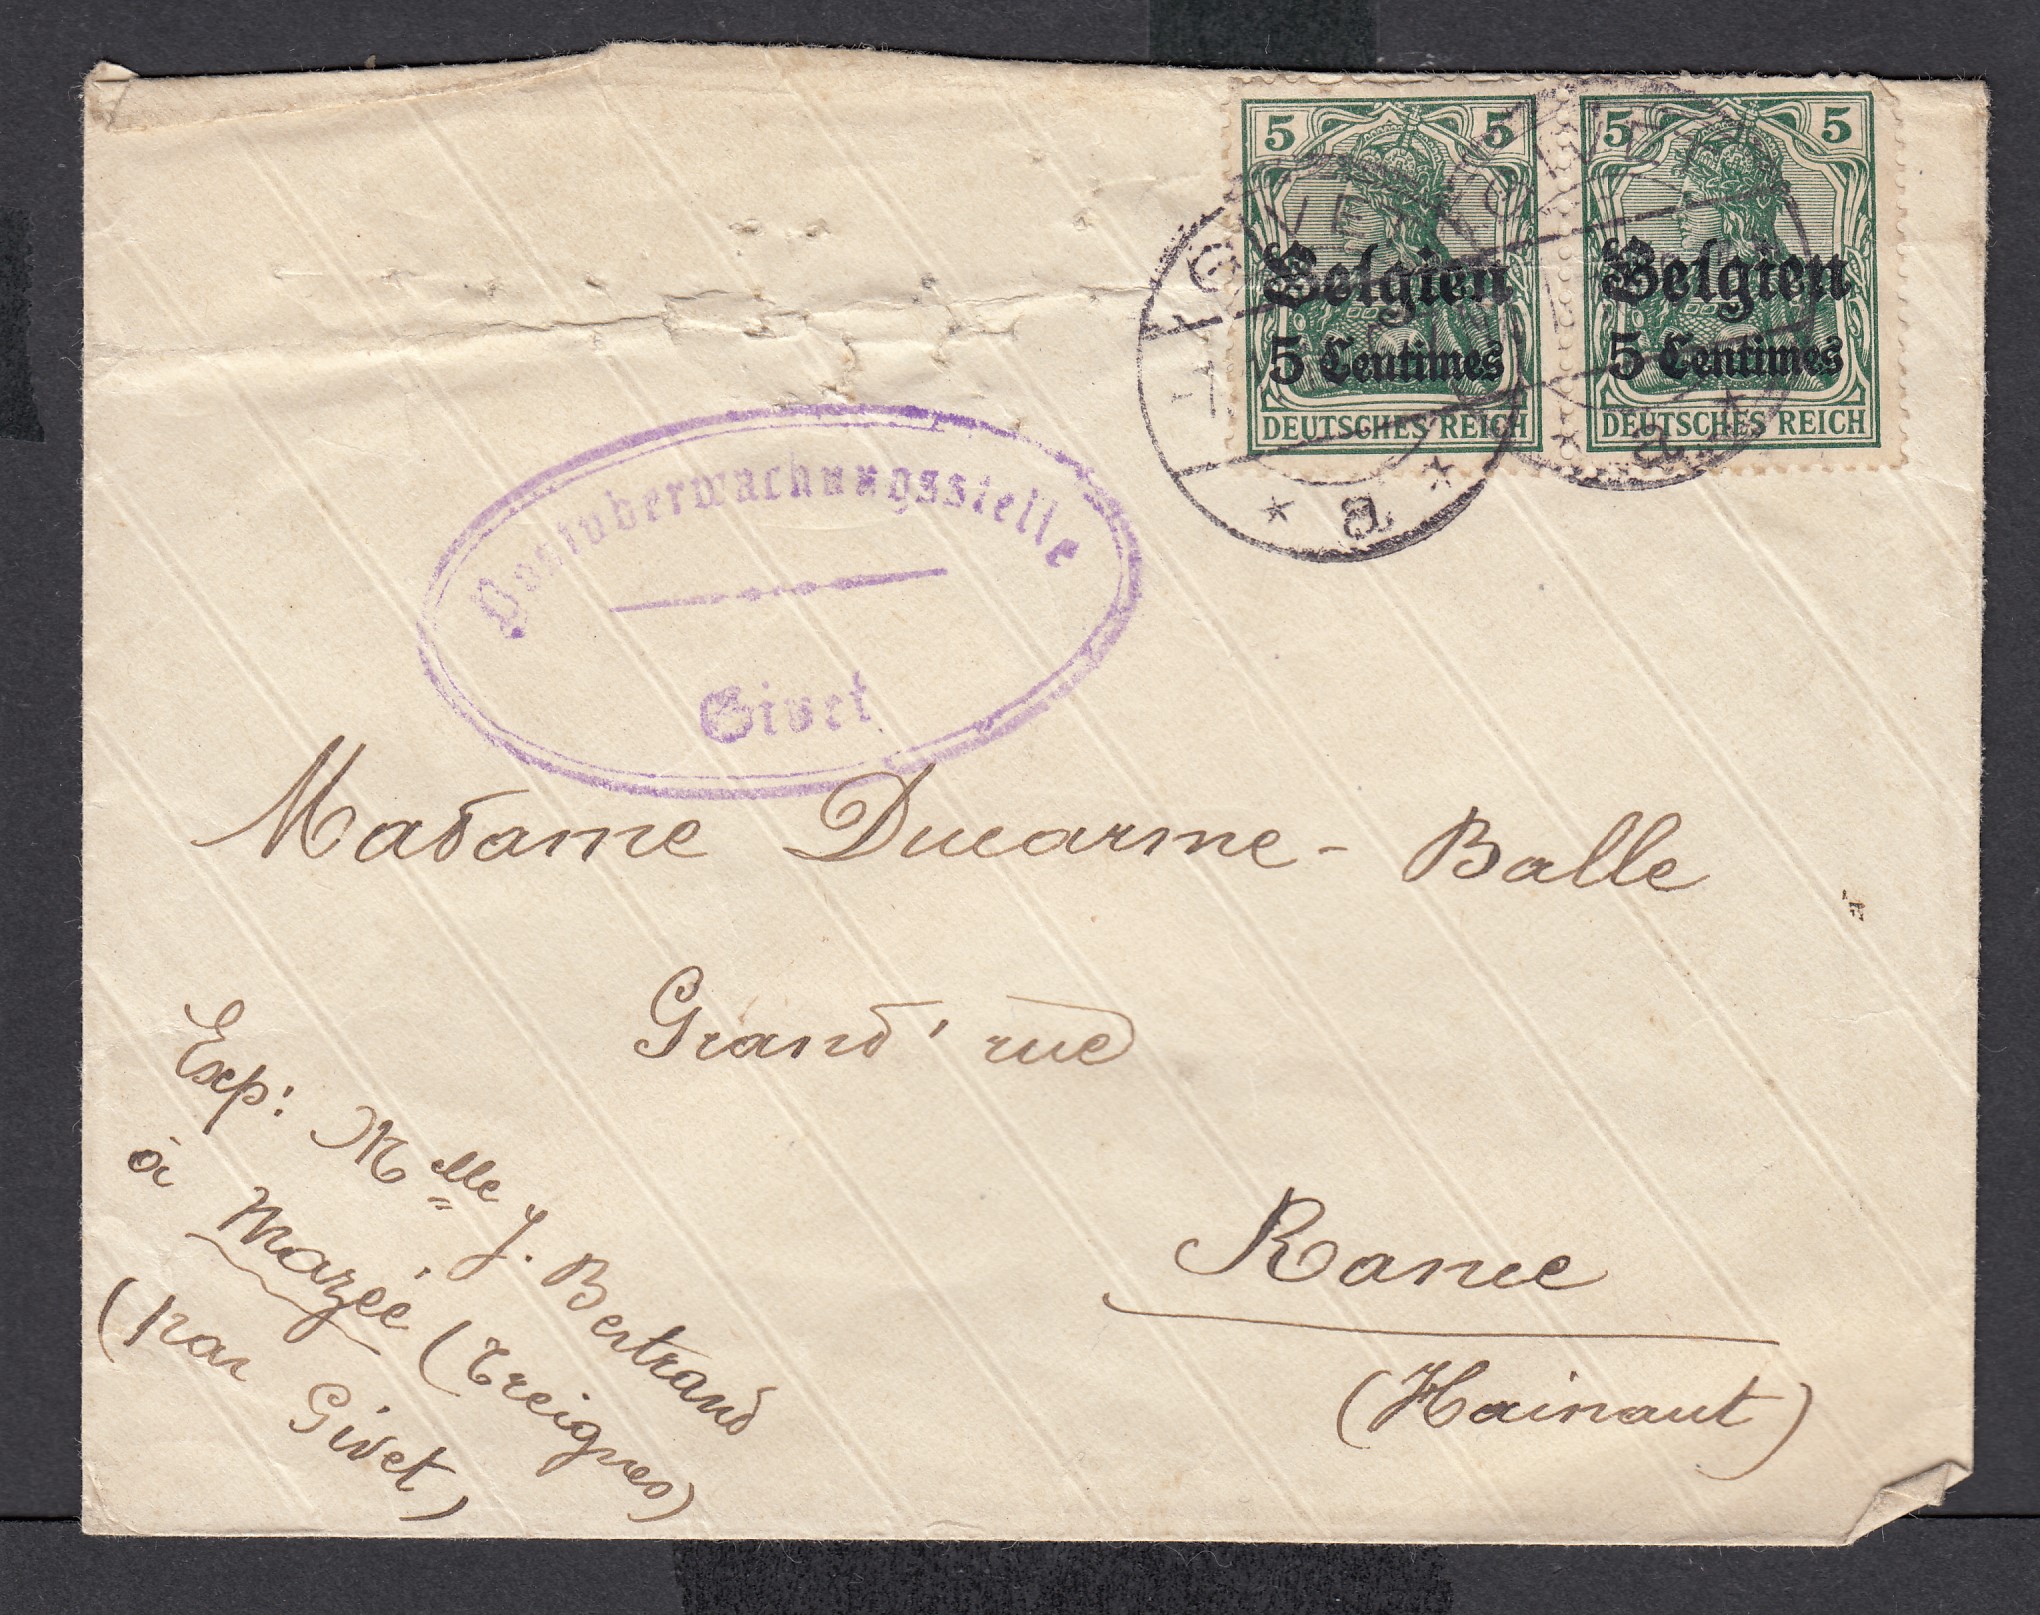 5 5
Belgien
5 Centimes
DEUTSCHES REICH
5 5
Belgien
5 Centimes
DEUTSCHES REICH
GIVET
* a *
GIVET
* a *
Postüberwachungsstelle
Givet
Madame Ducarme - Balle
Grand' rue
Rance
(Hainaut)
Exp: Mlle J. Bertrand
à Mazée (Treignes)
(par Givet)